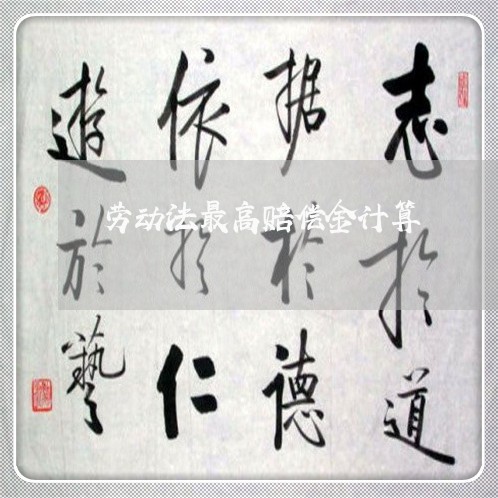 志於道
据於德
依於仁
遊於藝
劳动法最高赔偿金计算